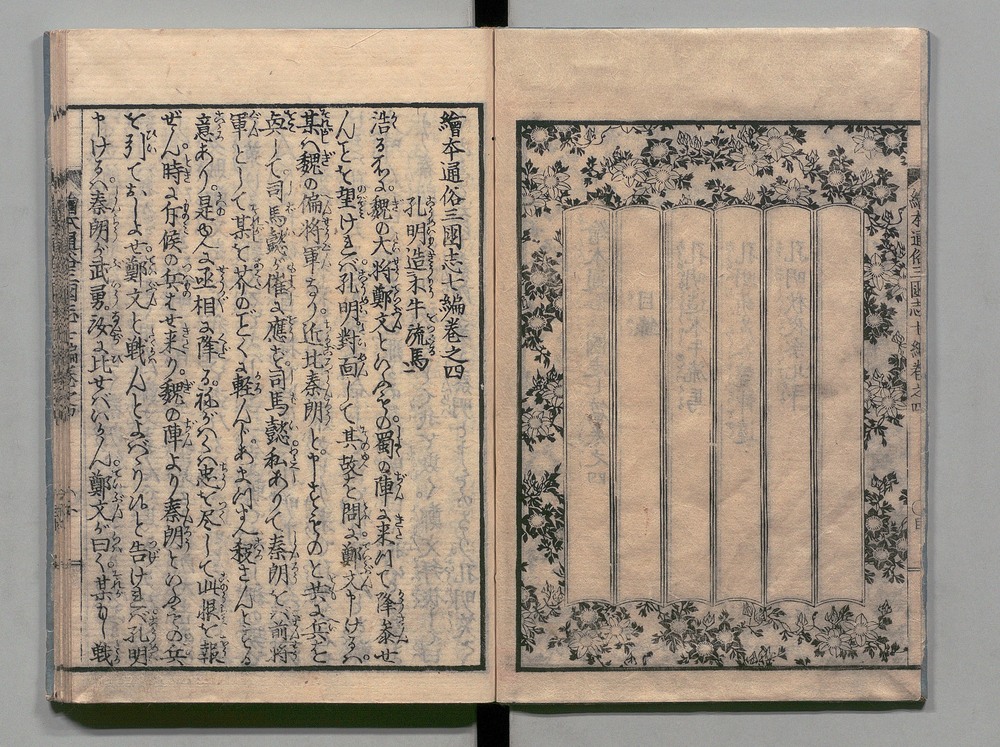 繪本通俗三國志七編卷之四
孔明造木牛流馬
浩る不に魏の大将鄭文といふもの蜀の陣に来りて降参せ
んことを望けれバ孔明對面して其故を問に鄭文申けるハ
某ハ魏の偏将軍なり近比秦朗と申すものと共に兵を
具して司馬懿が催に應ず司馬懿私ありて秦朗を前将
軍として某を芥のごとく軽んじあまつさへ殺さんとする
意あり是ゆへ丞相に降る祢がハくハ忠を尽して此恨を報
ぜん時に斥候の兵はせ来り魏の陣より秦朗といふもの兵
を引ておしよせ鄭文と戦んとよバゝり候と告けれバ孔明
申けるハ秦朗が武勇汝に比せバいかん鄭文が曰く某もし戦
繪本通俗三國志七編卷之四
目